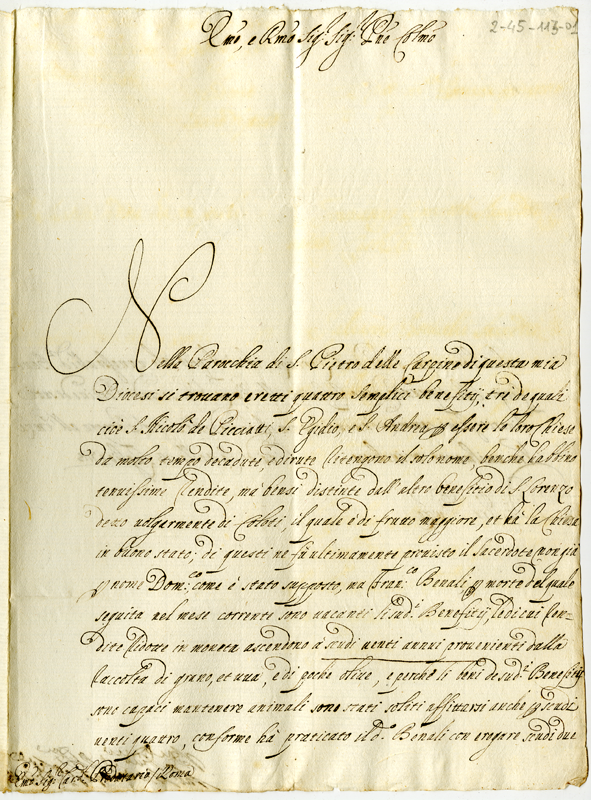 2-45-113-01
Emo, e Rmo Sig.r Sig.r Pne Colmo
Nella Parochia di S. Pietro delle Cargino di questa mia
Diocesi si trovano eretti quattro semplici benefitij, tre de quali
cioè S. Nicolò de Picciani, S. Egidio, e S. Andrea p essere le loro Chiese
da molto tempo decadute, e dirute ritengono il solo nome, benche habbino
tenuissime Rendite, mà bensi distinte dall'altro benefitio di S. Lorenzo
detto volgarmente di Coloti, il quale è di frutto maggiore, et hà la Chiesa
in buono stato; di questi ne fù ultimamente provisto il Sacerdote non già
p nome Dom.co come è stato supposto, ma Fran.co Benali p morte del quale
seguita nel mese corrente sono vacanti li sud.i Benefitij, le di cui Ren-
dite ridotte in moneta ascendono à scudi venti annui provenienti dalla
raccolta di grano, et uua, e di poche olive, e perche li beni de sud.i Benefitij
sono capaci mantenere animali sono stati soliti affittarsi anche p scudi
venti quattro, conforme hà praticato il d.o Benali con erogare scudi due
Emo Sig.r Card.le Prodatario / Roma